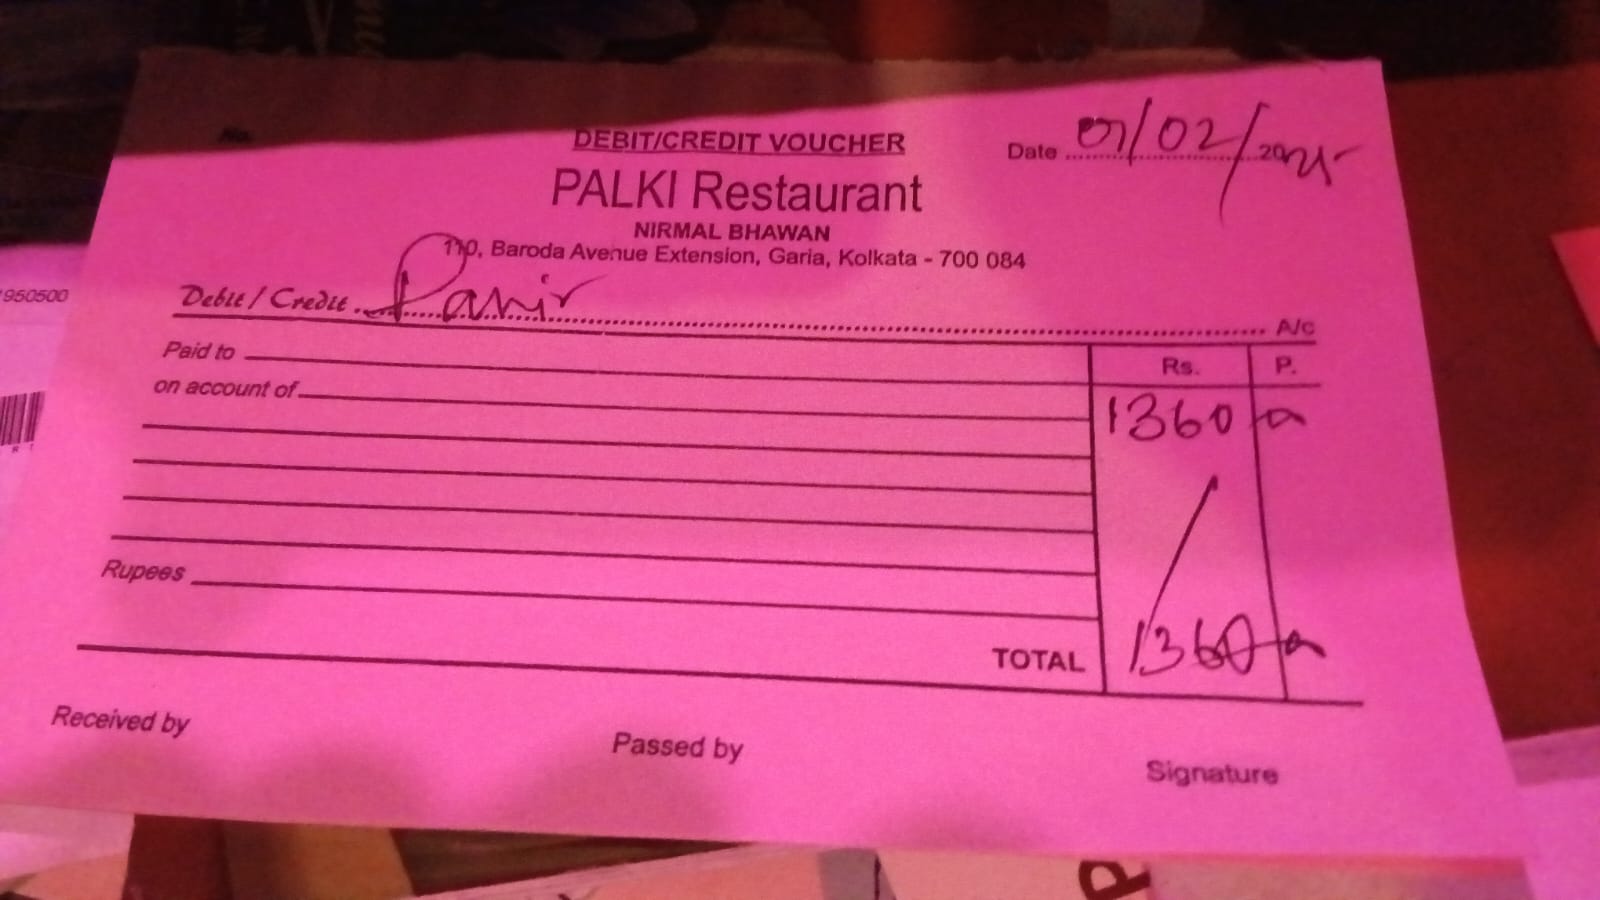 No.
DEBIT/CREDIT VOUCHER
Date 07/02/2025
PALKI Restaurant
NIRMAL BHAWAN
110, Baroda Avenue Extension, Garia, Kolkata - 700 084
Debit / Credit Panir A/c
Paid to
Rs. P.
on account of
1360
Rupees
TOTAL 1360
Received by
Passed by
Signature
950500
P